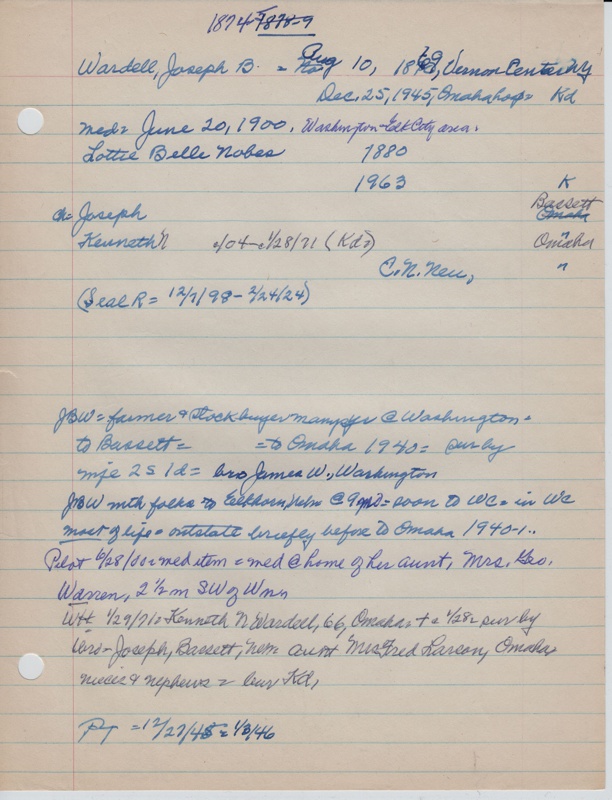 1874-1878-9
Wardell, Joseph B. = Aug 10, 18, Vernon Center, NY
Dec. 25, 1945, Omaha hosp = Kd
med= June 20, 1900. Washington-Elk City area.
Lottie Belle Nobes 1880
1963 K
Bassett
ch= Joseph Omaha
Kenneth N 1/28/71 (Kd?) Omaha
C. N. Neu, "
(Seal R = 12/7/98 - 2/24/24)
JBW = farmer & stockbuyer many yrs @ Washington =
to Bassett = = to Omaha 1940 = sur by
wife 2 s 1 d = bro James W., Washington
JBW with folks to Elkhorn, Nebr @ 9 = soon to WC = in WC
most of life = outstate briefly before to Omaha 1940-1..
Pilot 6/28/00 = med item = med @ home of her aunt, Mrs. Geo.
Warren, 2 1/2 m SW of Wnn
WH 1/29/71 = Kenneth N Wardell, 66, Omaha = + = 1/28 = sur by
bro = Joseph, Bassett, Nebr = aunt Mrs Fred Larson, Omaha =
nieces & nephews = bur Kd.
PT = 12/27/45 = 1/3/46